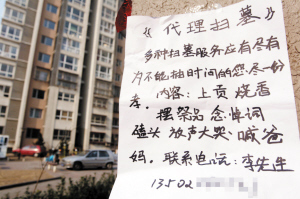 《代理扫墓》
多种扫墓服务应有尽有
为不能抽时间的您尽一份
孝。内容:上贡 烧香
摆祭品 念悼词
磕头 放声大哭 喊爸
妈。联系电话:李先生
13502